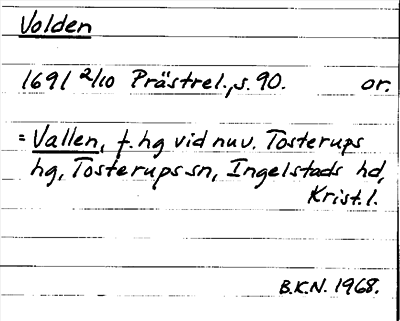 Volden
1691 2/10 Prästrel., s. 90. or.
= Vallen, f. hg vid nuv. Tosterups
hg, Tosterups sn, Ingelstads hd,
Krist. l.
B.K.N. 1968.